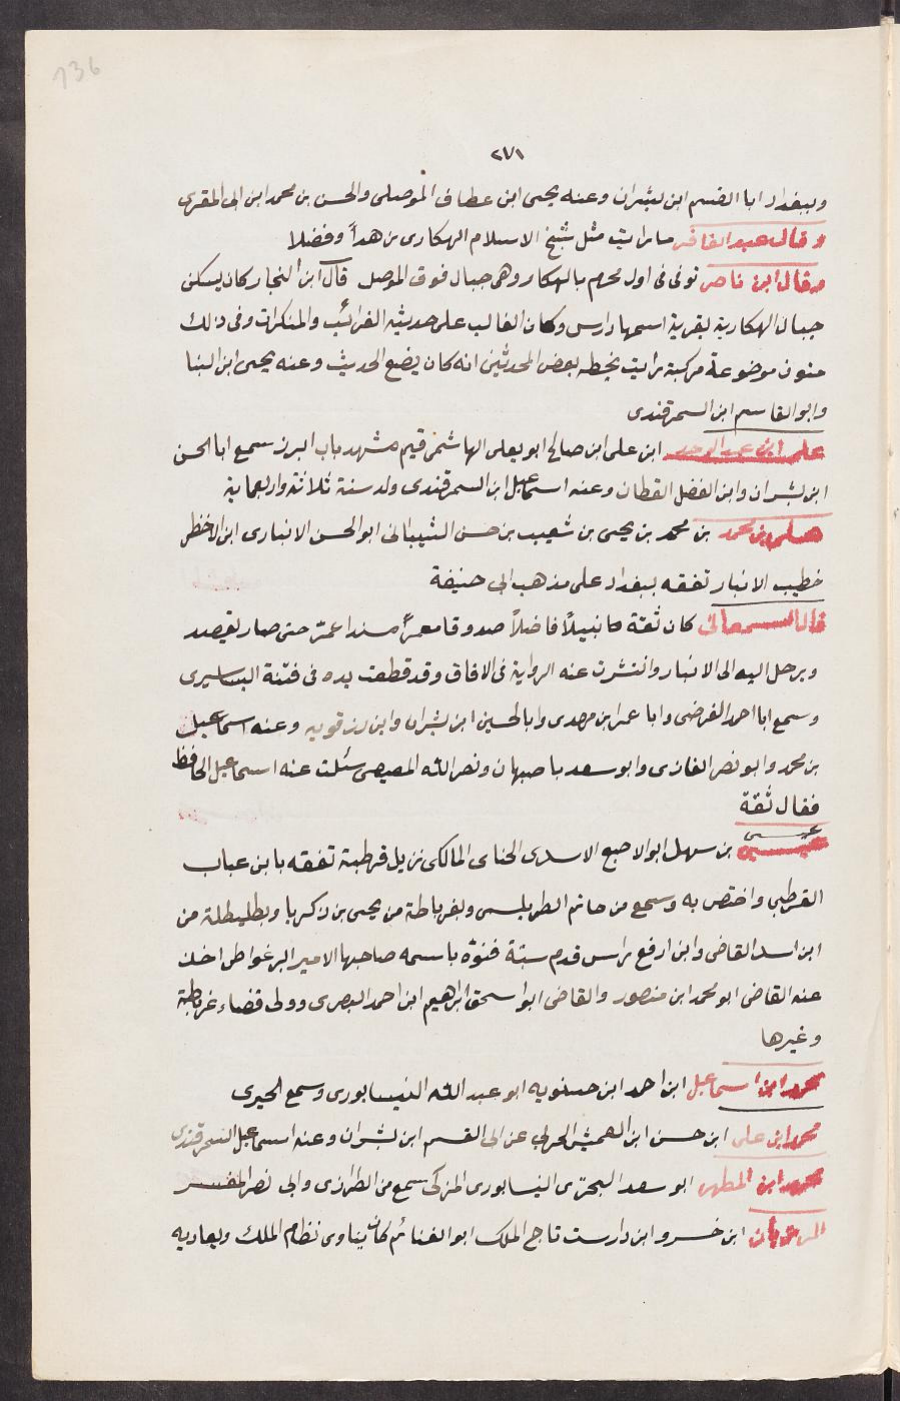 136
٢٧١
وببغداد ابا القسم ابن بشران وعنه يحيى ابن عطاف الموصلى والحسن بن محمد ابن ابى المقرى
وقال عبد الغافر ما رايت مثل شيخ الاسلام الهكارى زهداً وفضلا
وقال ابن ناصر توفى فى اول محرم بالهكار وهى جبال فوق الموصل قال ابن النجار كان يسكن
جبال الهكارية بقرية اسمها دارس وكان الغالب على حديثه الغرائب والمنكرات وفى ذلك
متون موضوعة مركبة رايت بخط بعض المحدثين انه كان يضع الحديث وعنه يحيى ابن البنا
وابو القاسم ابن السمرقندى
على ابن عبد الواحد ابن على ابن صالح ابو يعلى الهاشمى قيم مشهد باب البرز سمع ابا الحسن
ابن بشران وابن الفضل القطان وعنه اسماعيل ابن السمرقندى ولد سنة ثلاثة واربعماية
على بن محمد بن محمد بن يحيى بن شعيب بن حسن الشيبانى ابو الحسن الانبارى ابن الاخظر
خطيب الانبار تفقه ببغداد على مذهب ابى حنيفة
قال السمعانى كان ثقة نبيلاً فاضلاً صدوقا معمراً مسندا عمّر حتى صار يقصد
ويرحل اليه الى الانبار وانتشرت عنه الرواية فى الافاق وقد قطعت يده فى فتنة البساسيرى
وسمع ابا احمد الفرضى وابا عمر ابن مهدى وابا لحسين ابن بشران وابن رزقويه وعنه اسماعيل
بن محمد وابو نصر الغازى وابو سعد باصبهان ونصر الله المصيصى سئلت عنه اسماعيل الحافظ
فقال ثقة
عيسى
عيسى بن سهل ابو الاصبع الاسدى الجنانى المالكى نزيل قرطبة تفقه بابن عباب
القرطبى واختص به وسمع من حاتم الطربلسى وبغرناطة من يحيى بن زكريا وبطليطلة من
ابن اسد القاضى وابن ارفع راس قدم سبتة فنوّه باسمه صاحبها الامير البرغواطى اخذ
عنه القاضى ابو محمد ابن منصور والقاضى ابو اسحق ابراهيم ابن احمد البصرى وولى قضاء غرناطة
وغيرها
محمد ابن اسماعيل ابن احمد ابن حسنويه ابو عبد الله النيسابورى وسمع الحيرى
محمد ابن على ابن حسن ابن العميش الحربى عن ابى القسم ابن بشران وعنه اسماعيل السمرقندى
محمد ابن المطهر ابو سعد البحترى النيسابورى المزكى سمع من الطرازى وابى نصر المفسر
المرزبان ابن خسرو ابن دارست تاج الملك ابو الغنائم كان يناوى نظام الملك ويعاديه